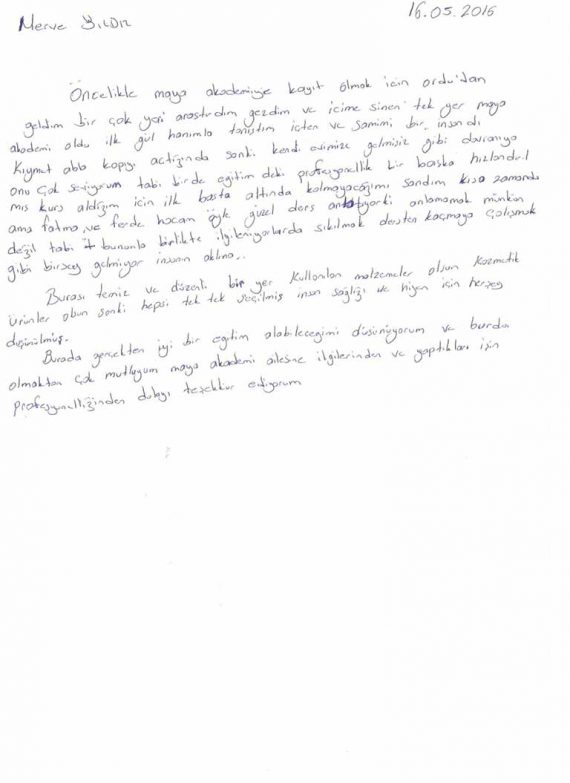 Merve YILDIZ
16.05.2016
Öncelikle maya akademiye kayıt olmak için ordu'dan
geldim bir çok yeri araştırdım gezdim ve içime sinen tek yer maya
akademi oldu ilk gül hanımla tanıştım içten ve samimi bir insandı
Kıymet abla kapıyı açtığında sanki kendi evimize gelmişiz gibi davranıyo
onu çok seviyorum tabi birde eğitim deki profesyonellik bir başka hızlandırıl
mış kurs aldığım için ilk başta altında kalmayacağımı sandım kısa zamanda
ama fatma ve ferde hocam öyle güzel ders anlatıyorki anlamamak münkün
değil tabi bununla birlikte ilgileniyorlarda sıkılmak dersten kaçmaya çalışmak
gibi birşey gelmiyor insanın aklına..
Burası temiz ve düzenli bir yer kullanılan malzemeler olsun kozmetik
ürünler olsun sanki hepsi tek tek seçilmiş insan sağlığı ve hijyen için herşey
düşünülmüş.
Burada gerçekten iyi bir eğitim alabileceğimi düşünüyorum ve burda
olmaktan çok mutluyum maya akademi ailesine ilgilerinden ve yaptıkları işin
profesyonelliğinden dolayı teşekkür ediyorum